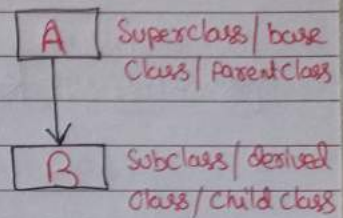 A Superclass/base
Class/Parent Class
B Subclass/derived
Class/Child class